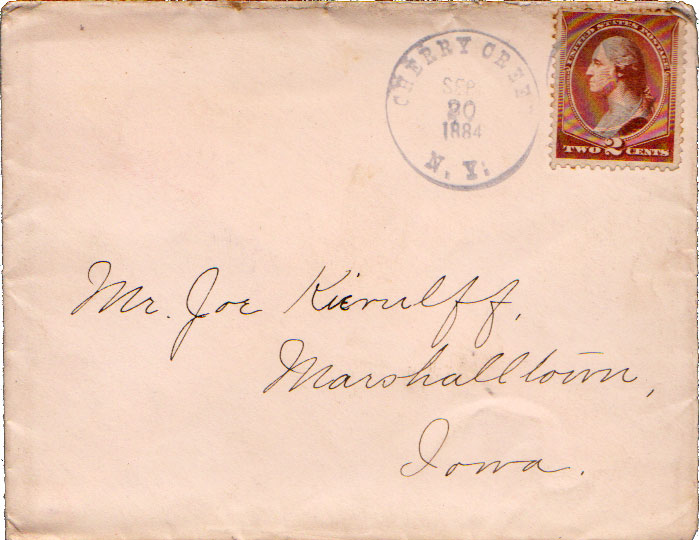 CHERRY CREE
SEP
20
1884
N. Y.
UNITED STATES POSTAGE
TWO 2 CENTS
Mr. Joe Kierulff,
Marshalltown,
Iowa.